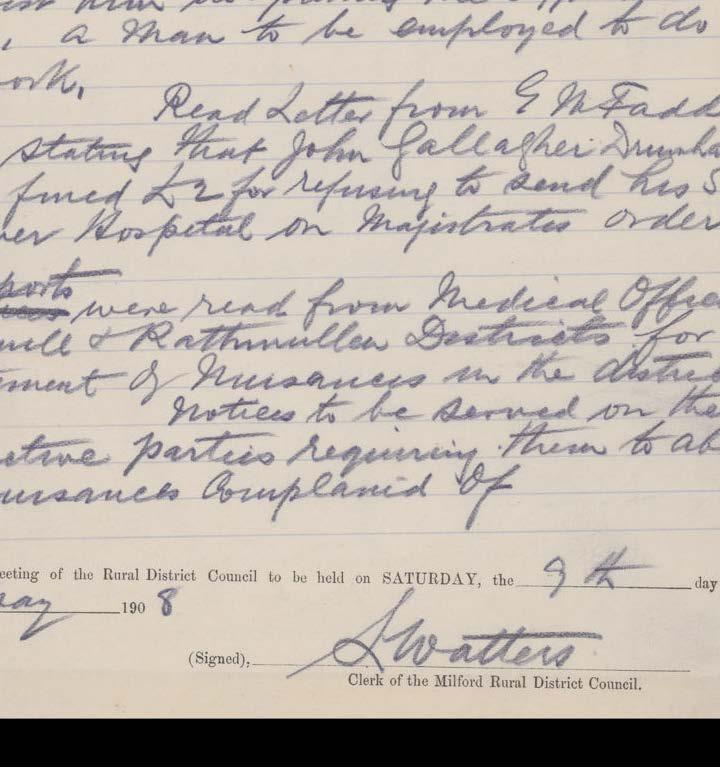 , a man to be employed to do
ork,
Read Letter from G McFadd
stating that John Gallagher Drumha
fined £2 for refusing to send his S
ver Hospital on Magistrates order
ports
were read from Medical Offic
& Rathmullen Districts for
ement of Nuisances in the distric
Notices to be served on the
ctive parties requiring them to ab
uisances Complanid Of
eeting of the Rural District Council to be held on SATURDAY, the 9th day
ay 1908
(Signed), S Watters
Clerk of the Milford Rural District Council.